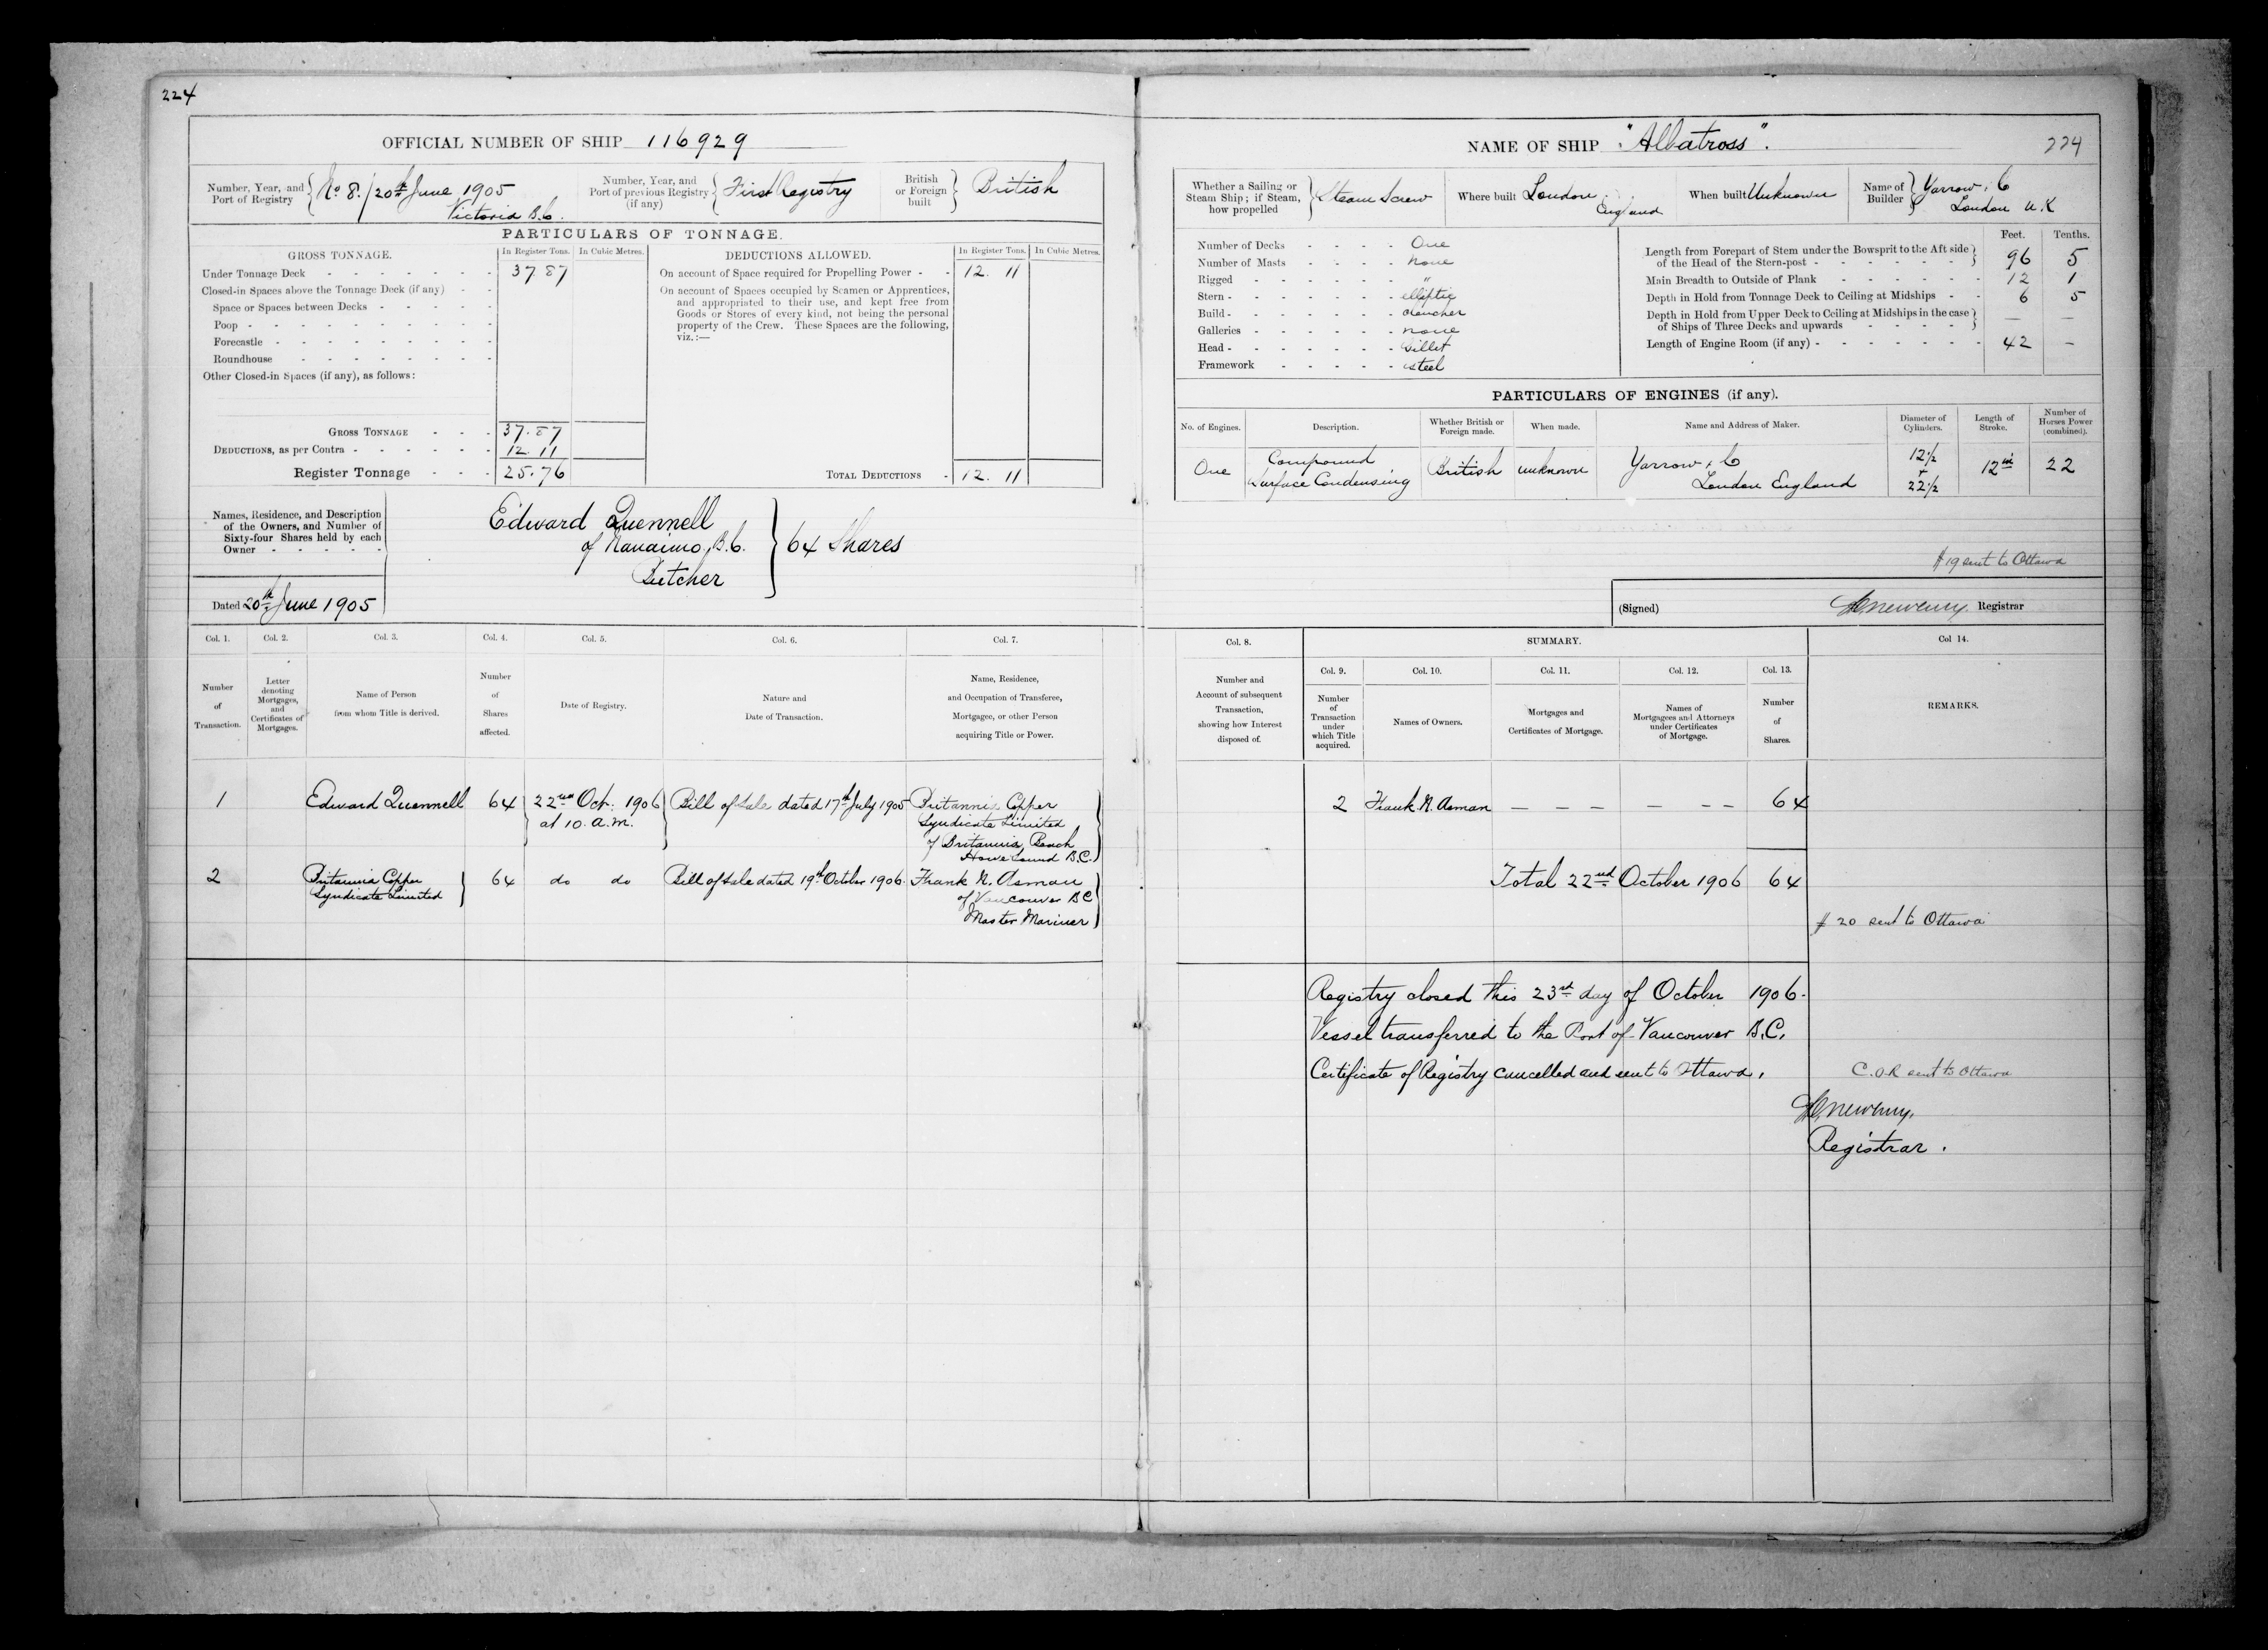 224
OFFICIAL NUMBER OF SHIP 116929
Number, Year, and Port of Registry { No 8. / 20th June 1905 Victoria B.C.
Number, Year, and Port of previous Registry (if any) { First Registry
British or Foreign built } British
PARTICULARS OF TONNAGE.
GROSS TONNAGE. In Register Tons. In Cubic Metres.
Under Tonnage Deck - - - - - - - 37.87
Closed-in Spaces above the Tonnage Deck (if any) - -
Space or Spaces between Decks - - - - -
Poop - - - - - - - - - -
Forecastle - - - - - - - - -
Roundhouse - - - - - - - -
Other Closed-in Spaces (if any), as follows:
GROSS TONNAGE - - - 37.87
DEDUCTIONS, as per Contra - - - - - - 12.11
Register Tonnage - - - 25.76
DEDUCTIONS ALLOWED. In Register Tons. In Cubic Metres.
On account of Space required for Propelling Power - - 12. 11
On account of Spaces occupied by Seamen or Apprentices,
and appropriated to their use, and kept free from
Goods or Stores of every kind, not being the personal
property of the Crew. These Spaces are the following,
viz.:—
TOTAL DEDUCTIONS - 12. 11
Names, Residence, and Description
of the Owners, and Number of
Sixty-four Shares held by each
Owner - - - - -
Edward Quennell
of Nanaimo, B.C. } 64 Shares
Butcher
Dated 20th June 1905
Col. 1. Col. 2. Col. 3. Col. 4. Col. 5. Col. 6. Col. 7.
Number of Transaction.
Letter denoting Mortgages, and Certificates of Mortgages.
Name of Person from whom Title is derived.
Number of Shares affected.
Date of Registry.
Nature and Date of Transaction.
Name, Residence, and Occupation of Transferee, Mortgagee, or other Person acquiring Title or Power.
1 Edward Quennell 64 22nd Oct. 1906 Bill of Sale dated 17th July 1905 Britannia Copper
at 10. a.m. Syndicate Limited
of Britannia Beach
Howe Sound B.C.
2 Britannia Copper 64 do do Bill of Sale dated 19th October 1906. Frank N. Asman
Syndicate Limited of Vancouver BC
Master Mariner
NAME OF SHIP "Albatross".
224
Whether a Sailing or Steam Ship; if Steam, how propelled } Steam Screw
Where built London England
When built Unknown
Name of Builder } Yarrow & C London U.K
Number of Decks - - - - One
Number of Masts - - - - none
Rigged - - - - - - "
Stern - - - - - - - elliptic
Build - - - - - - - clencher
Galleries - - - - - - none
Head - - - - - - - billet
Framework - - - - - steel
Feet. Tenths.
Length from Forepart of Stem under the Bowsprit to the Aft side
of the Head of the Stern-post - - - - - - - 96 5
Main Breadth to Outside of Plank - - - - - - 12 1
Depth in Hold from Tonnage Deck to Ceiling at Midships - - 6 5
Depth in Hold from Upper Deck to Ceiling at Midships in the case
of Ships of Three Decks and upwards - - - - — —
Length of Engine Room (if any) - - - - - - - 42 —
PARTICULARS OF ENGINES (if any).
No. of Engines. Description. Whether British or Foreign made. When made. Name and Address of Maker. Diameter of Cylinders. Length of Stroke. Number of Horses Power (combined).
One Compound Surface Condensing British unknown Yarrow & C London England 12½ + 22½ 12 in 22
# 19 sent to Ottawa
(Signed) Registrar
Col. 8. SUMMARY. Col 14.
Col. 9. Col. 10. Col. 11. Col. 12. Col. 13.
Number and Account of subsequent Transaction, showing how Interest disposed of.
Number of Transaction under which Title acquired.
Names of Owners.
Mortgages and Certificates of Mortgage.
Names of Mortgagees and Attorneys under Certificates of Mortgage.
Number of Shares.
REMARKS.
2 Frank N. Asman — — — — — — 64
Total 22nd October 1906 64
# 20 sent to Ottawa
Registry closed this 23rd day of October 1906.
Vessel transferred to the Port of Vancouver B.C.
Certificate of Registry cancelled and sent to Ottawa.
C.O.R sent to Ottawa
Registrar.